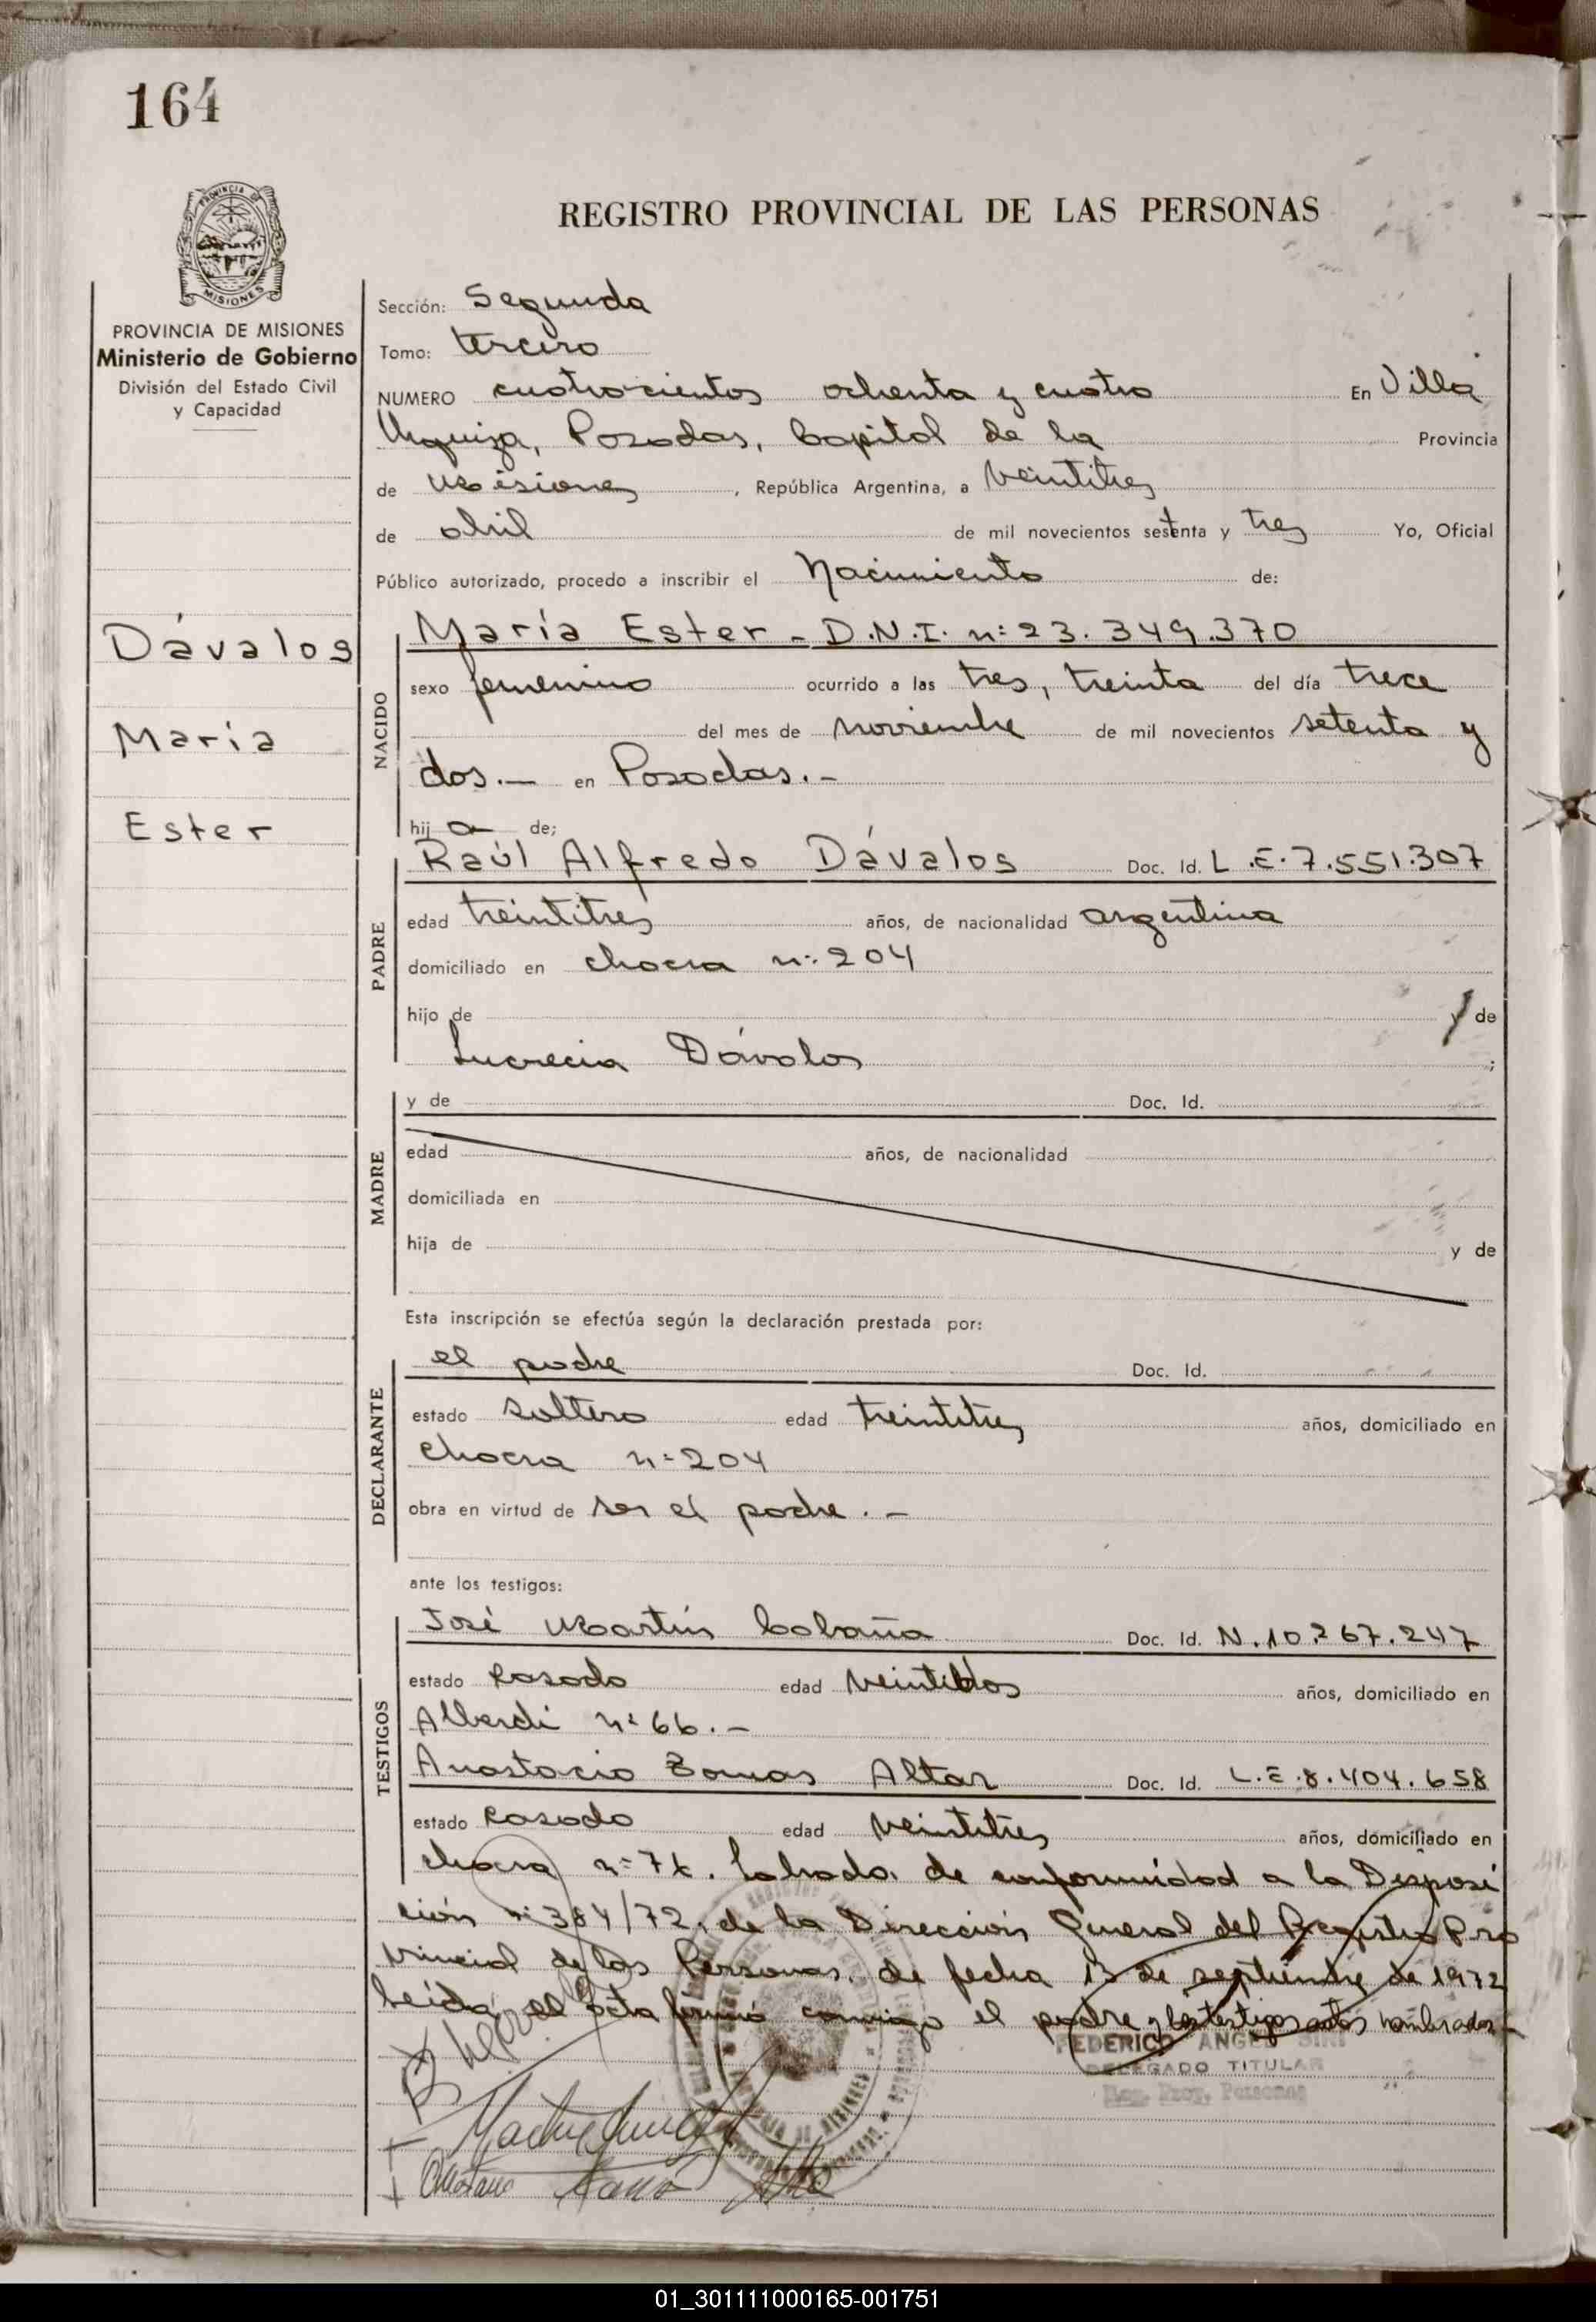 164
PROVINCIA DE
MISIONES
REGISTRO PROVINCIAL DE LAS PERSONAS
PROVINCIA DE MISIONES
Ministerio de Gobierno
División del Estado Civil
y Capacidad
Dávalos
María
Ester
Sección: Segunda
Tomo: tercero
NUMERO cuatrocientos ochenta y cuatro En Villa
Urquiza, Posadas, Capital de la Provincia
de Misiones, República Argentina, a veintitres
de abril de mil novecientos setenta y tres Yo, Oficial
Público autorizado, procedo a inscribir el Nacimiento de:
NACIDO
María Ester - D.N.I. nº 23.349.370
sexo femenino ocurrido a las tres, treinta del día trece
del mes de noviembre de mil novecientos setenta y
dos.— en Posadas.-
hij a de;
PADRE
Raúl Alfredo Dávalos Doc. Id. L.E.7.551.307
edad treintitres años, de nacionalidad argentina
domiciliado en chacra nº 204
hijo de y de
Lucrecia Dávalos ;
MADRE
y de Doc. Id.
edad años, de nacionalidad
domiciliada en
hija de y de
Esta inscripción se efectúa según la declaración prestada por:
DECLARANTE
el padre Doc. Id.
estado soltero edad treintitres años, domiciliado en
chacra nº 204
obra en virtud de ser el padre.-
ante los testigos:
TESTIGOS
José Martín Cabaña Doc. Id. N.10.267.247
estado casado edad veintidos años, domiciliado en
Alberdi nº 66.-
Anastacio Altar Doc. Id. L.E.8.404.658
estado casado edad veintitres años, domiciliado en
chacra nº Labrada de conformidad a la Disposi
ción nº 384/72, de la Dirección General del Registro Pro
vincial de las Personas, de fecha 13 de septiembre de 1972
Leída el acta firmó conmigo el padre y los testigos nombrados-
FEDERICO ANGEL
DELEGADO TITULAR
Reg. Prov. Personas
01_301111000165-001751